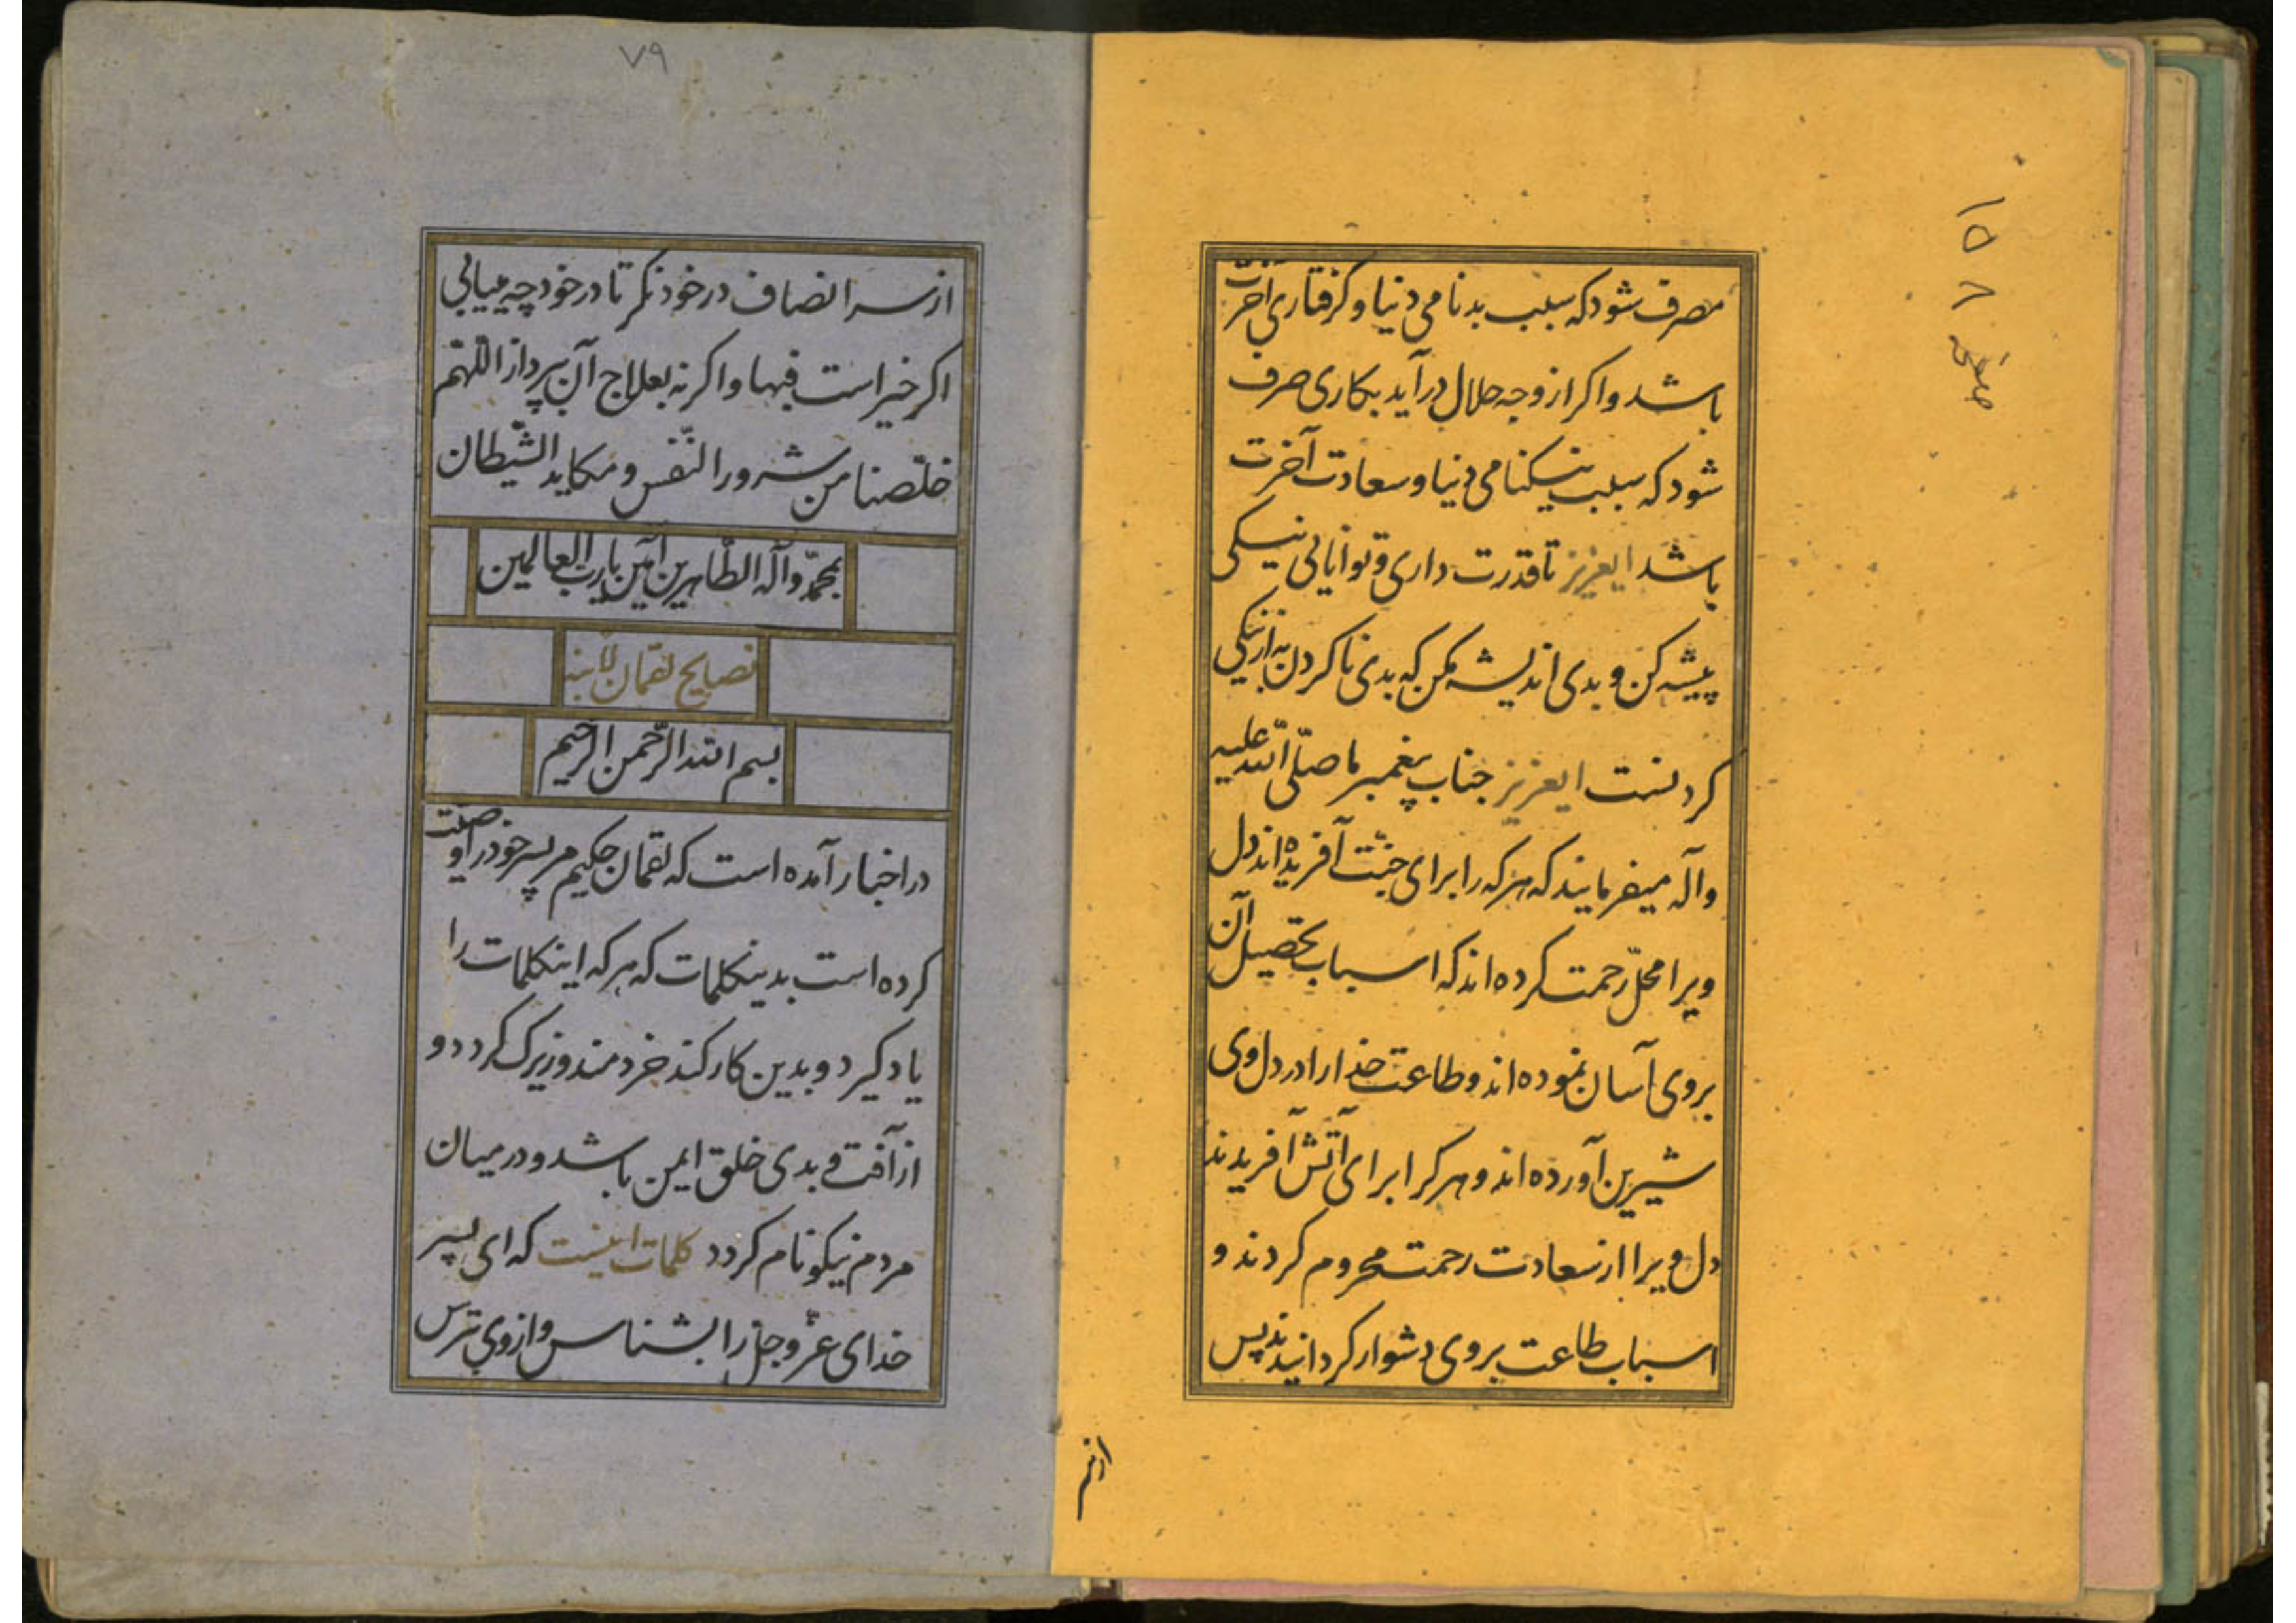 ۱۵۸
صفحه
مصرف شود که سبب بدنامی دنیا و کرفتاری آخرت
باشد و اکر از وجه حلال درآید بکاری صرف
شود که سبب نیکنامی دنیا و سعادت آخرت
باشد ایعزیز تا قدرت داری و توانایی نیکی
پیشه کن و بدی اندیشه مکن که بدی ناکردن به از نیکی
کردنست ایعزیز جناب پیغمبر ما صلّی الله علیه
وآله میفرمایند که هر که را برای جنّت آفریده اند دل
ویرا محلّ رحمت کرده اند که اسباب تحصیل آن
بروی آسان نموده اند و طاعت خدا را در دل وی
شیرین آورده اند و هر کرا برای آتش آفریدند
دل ویرا از سعادت رحمت محروم کردند و
اسباب طاعت بروی دشوار کردانیدند پس
از سر
۷۹
از سر انصاف در خود نکر تا در خود چه میابی
اکر خیر است فبها و اکر نه بعلاج آن پرداز اللّهمّ
خلّصنا من شرور النّفس و مکاید الشّیطان
بمحمّد وآله الطّاهرین آمین یا ربّ العالمین
نصایح لقمان لابنه
بسم الله الرّحمن الرّحیم
در اخبار آمده است که لقمان حکیم مر پسر خود را وصیّت
کرده است بدینکلمات که هر که اینکلمات را
یاد کیرد و بدین کار کند خردمند و زیرک کردد و
از آفت و بدی خلق ایمن باشد و در میان
مردم نیکو نام کردد کلمات اینست که ای پسر
خدای عزّ و جلّ را بشناس و از وی بترس